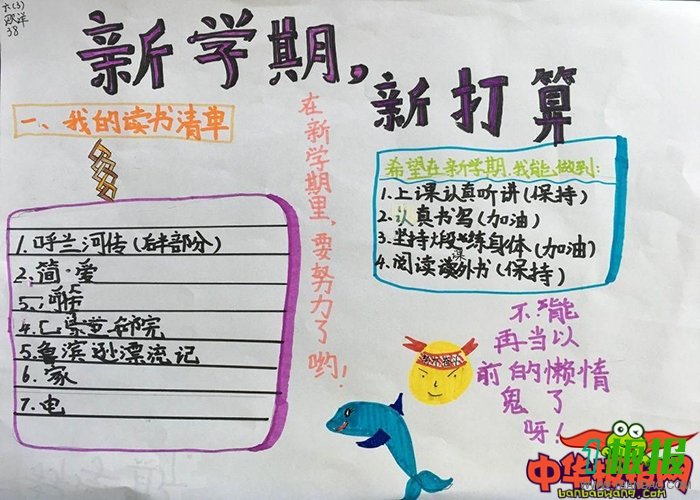 六(3)
38
新学期,
新打算
一、我的读书清单
1.呼兰河传(后半部分)
2.简·爱
4.
5.鲁滨逊漂流记
6.家
7.电
在新学期里,要努力了哟!
希望在新学期,我能做到:
1.上课认真听讲(保持)
2.认真书写(加油)
3.坚持煅练身体(加油)
4.阅读课外书(保持)
不能
再当以
前的懒惰
鬼了
呀!